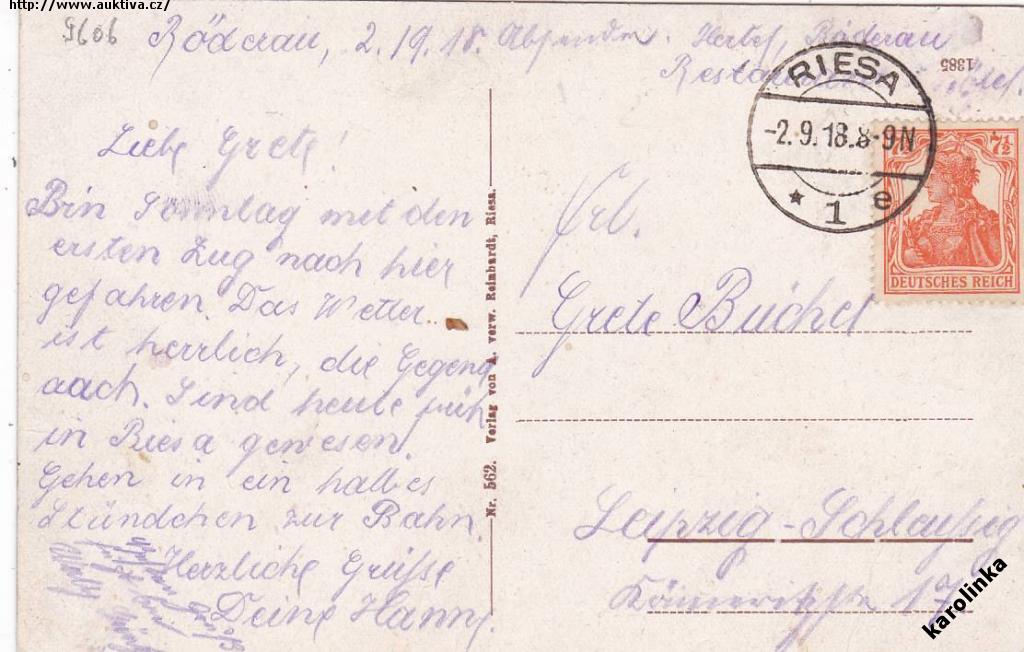 http://www.auktiva.cz/
9606
Röderau, 2.19.18. Absender. Röderau
1385
RIESA
-2.9.18.8-9N
* 1 e
7½
DEUTSCHES REICH
Liebe Grete!
Bin Sonntag mit den
ersten Zug nach hier
gefahren. Das Wetter
ist herrlich, die Gegend
auch. Sind heute früh
in Riesa gewesen.
Gehen in ein halbes
Stündchen zur Bahn.
Herzliche Grüsse
Deine Hanne.
Nr. 562. Verlag von A. verw. Reinhardt, Riesa.
Frl.
Grete Büchel
Leipzig-Schleußig
17
karolinka